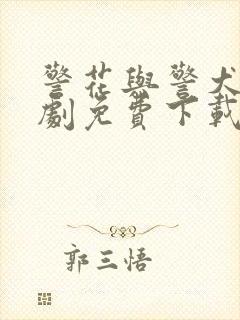 警花與警犬
劇免費下載
郭三悟